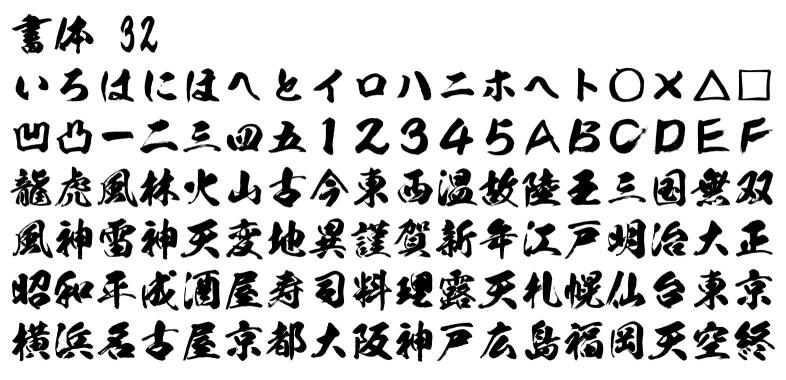 書体 32
いろはにほへとイロハニホヘト○×△□
凹凸一二三四五12345ABCDEF
龍虎風林火山古今東西温故陸王三国無双
風神雷神天変地異謹賀新年江戸明治大正
昭和平成酒屋寿司料理露天札幌仙台東京
横浜名古屋京都大阪神戸広島福岡天空終